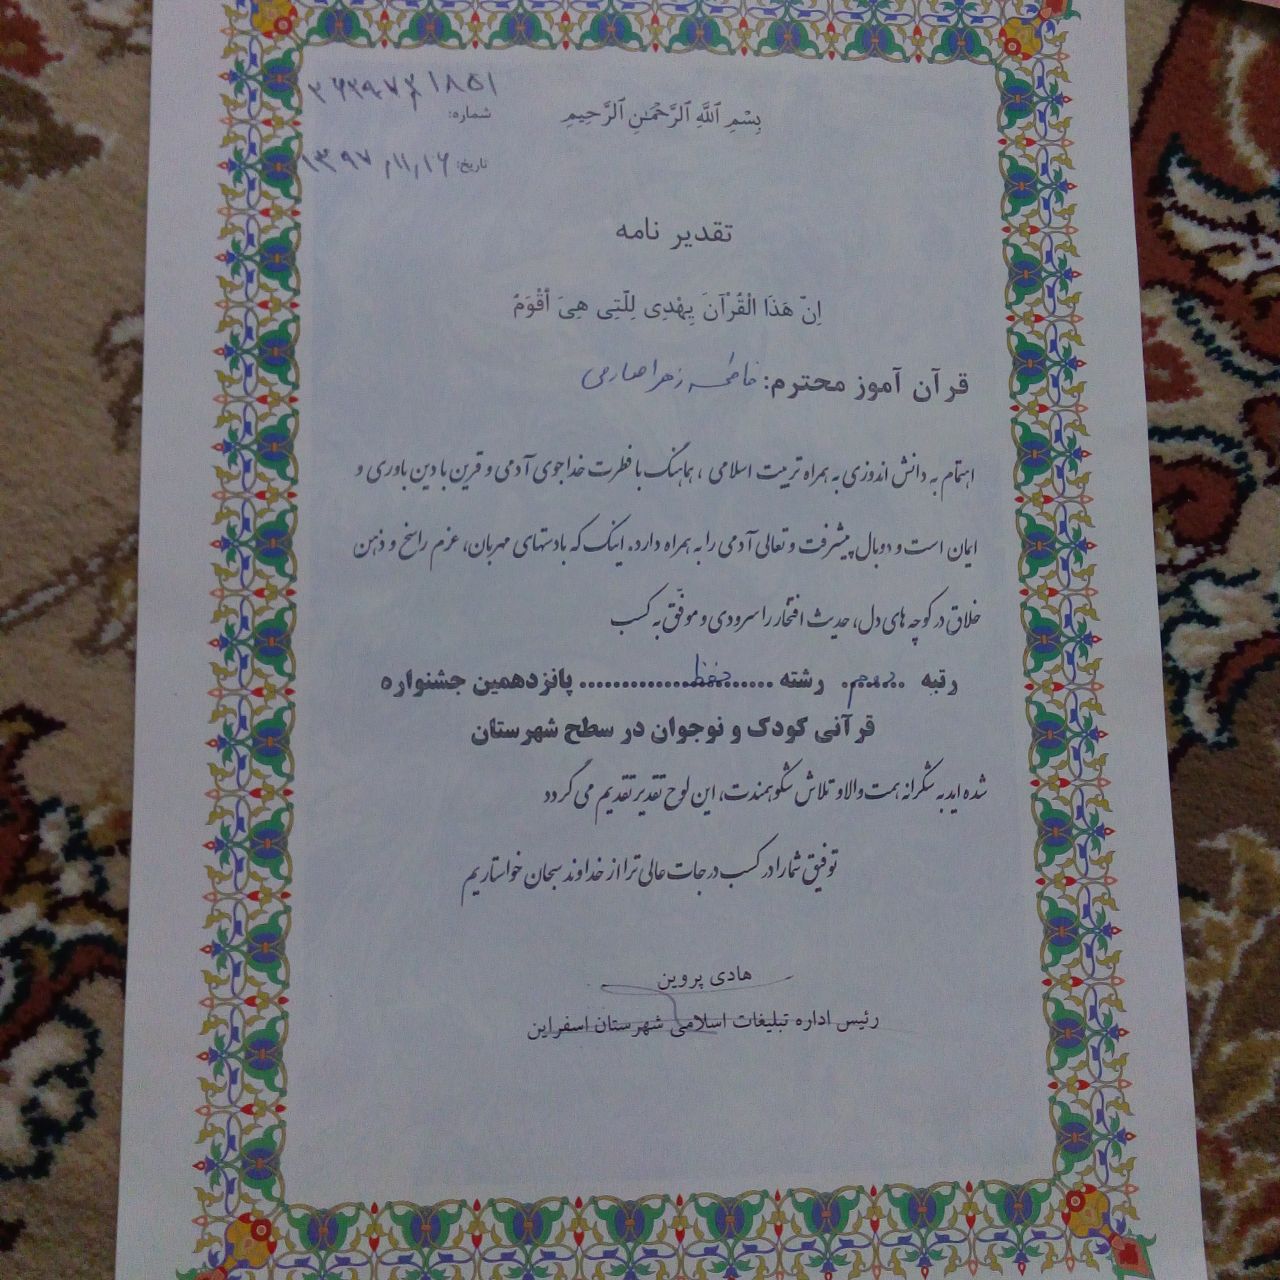 بِسْمِ ٱللَّهِ ٱلرَّحْمَٰنِ ٱلرَّحِيمِ
شماره:
تاریخ: ۱۳۹۷/۱۱/۱۶
تقدیر نامه
اِنّ هَذَا الْقُرْآنَ یِهْدِی لِلّتِی هِیَ اَقْوَمُ
قرآن آموز محترم: فاطمه زهرا صارمی
اهتمام به دانش اندوزی به همراه تربیت اسلامی ، هماهنگ با فطرت خداجوی آدمی و قرین با دین باوری و
ایمان است و دو بال پیشرفت و تعالی آدمی را به همراه دارد. اینک که با دستهای مهربان، عزم راسخ و ذهن
خلاق در کوچه های دل، حدیث افتخار را سرودی و موفّق به کسب
رتبه ........ رشته ....حفظ.... پانزدهمین جشنواره
قرآنی کودک و نوجوان در سطح شهرستان
شده اید به شکرانه همت والا و تلاش شکوهمندت، این لوح تقدیر تقدیم می گردد
توفیق شما را در کسب درجات عالی تر از خداوند سبحان خواستاریم
هادی پروین
رئیس اداره تبلیغات اسلامی شهرستان اسفراین